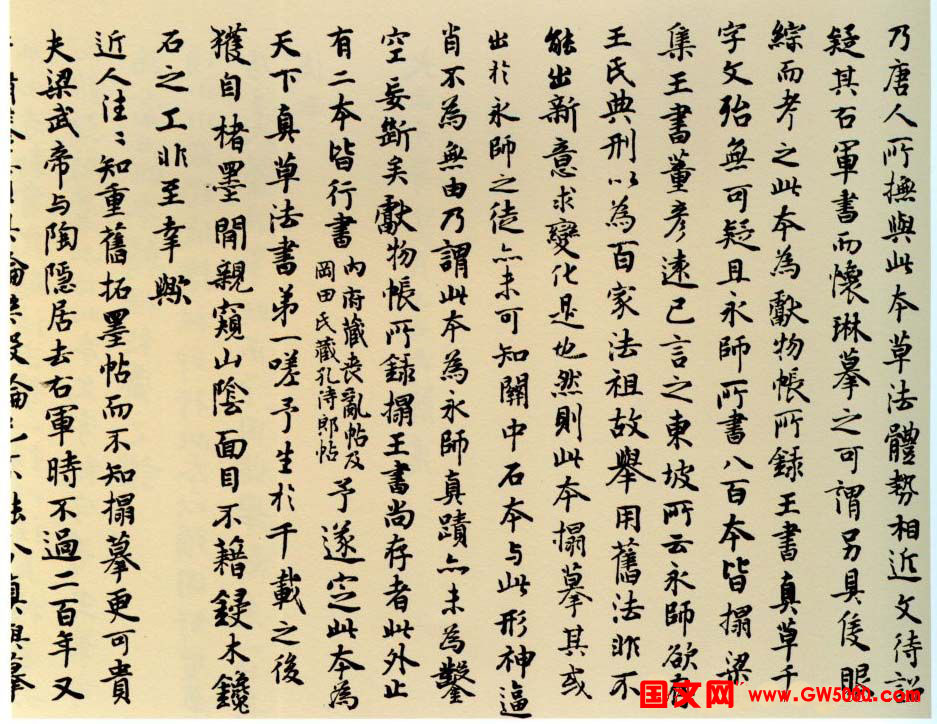 乃唐人所撫與此本草法體勢相近文待詔
疑其右軍書而懷琳摹之可謂另具隻眼
綜而考之此本為獻物帳所錄王書真草千
字文殆無可疑且永師所書八百本皆搨梁
集王書董彥遠已言之東坡所云永師欲存
王氏典刑以為百家法祖故舉用舊法非不
能出新意求變化是也然則此本搨摹其或
出於永師之徒亦未可知關中石本与此形神逼
肖不為無由乃謂此本為永師真蹟亦未為鑿
空妄斷矣獻物帳所錄搨王書尚存者此外止
有二本皆行書內府藏喪亂帖及岡田氏藏孔侍郎帖予遂定此本為
天下真草法書弟一嗟予生於千載之後
獲自楮墨間親窺山陰面目不藉鋟木鑱
石之工非至幸歟
近人往〻知重舊拓墨帖而不知搨摹更可貴
夫梁武帝与陶隱居去右軍時不過二百年又
国文网 www.GW5000.com